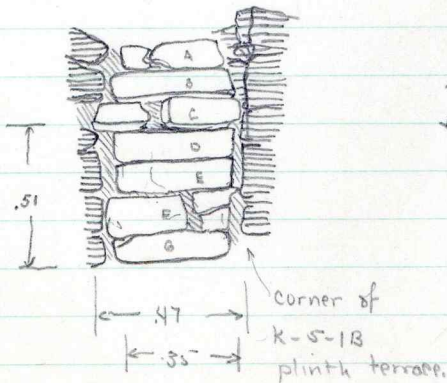 A
B
C
D
E
F
G
.51
.47
.35
corner of
K-5-1B
plinth terrace.